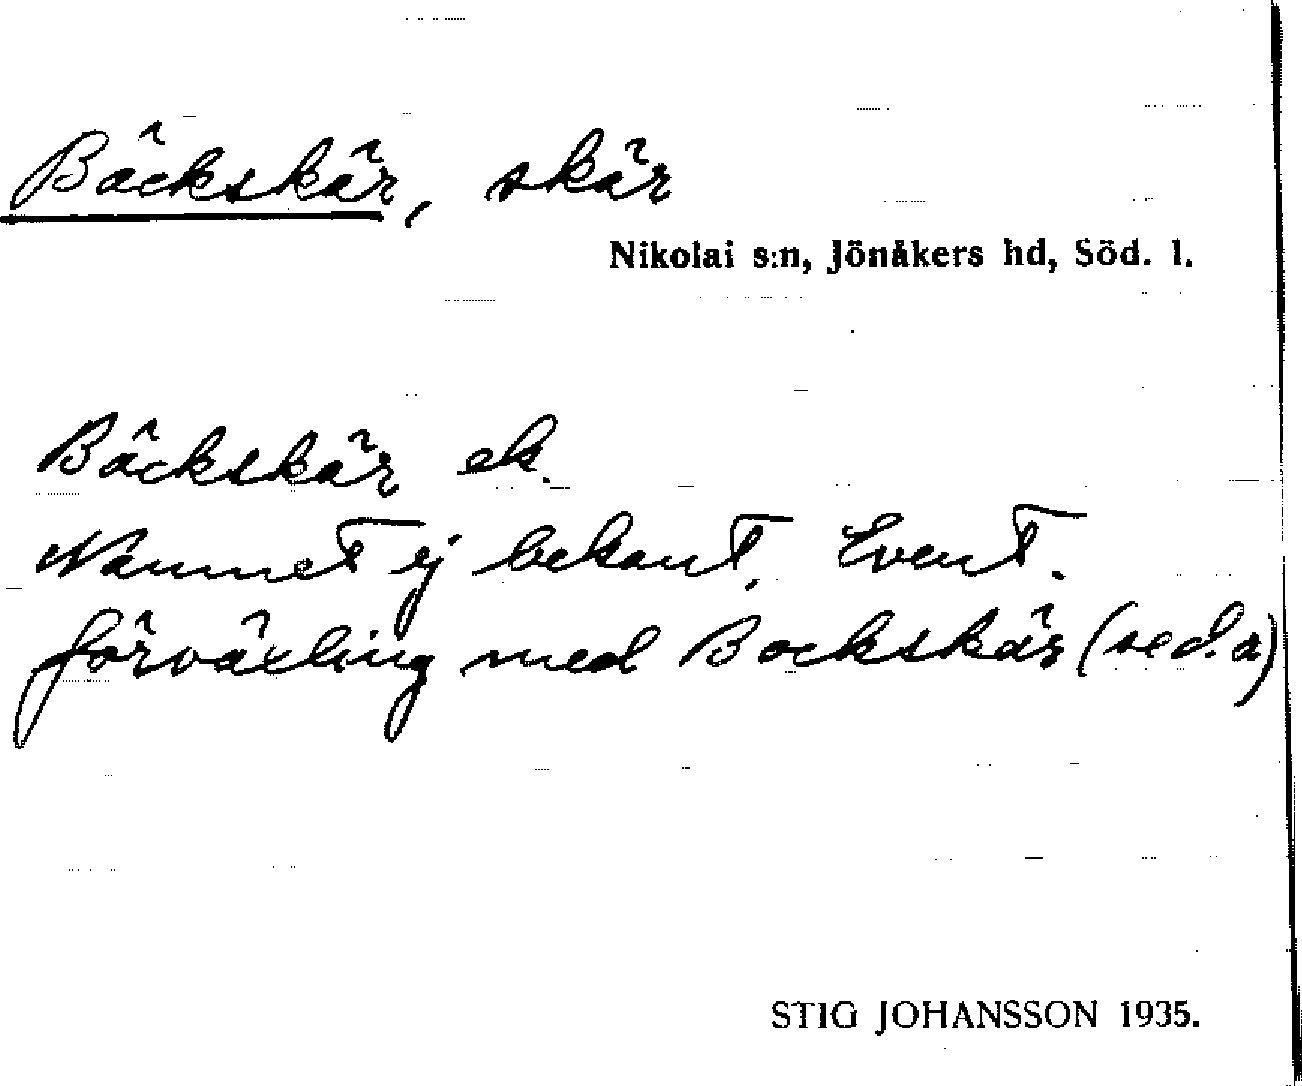 Bäckskär, skär
Nikolai s:n, Jönåkers hd, Söd. l.
Bäckskär ek.
Namnet ej bekant. Event.
förväxling med Bockskär (se d.a)
STIG JOHANSSON 1935.